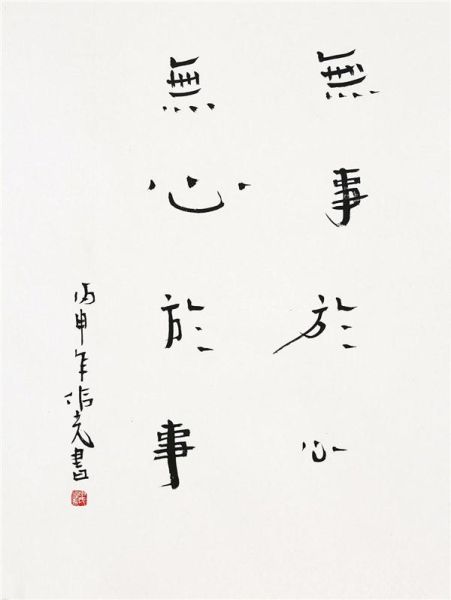 無事於心
無心於事
丙申年振光書